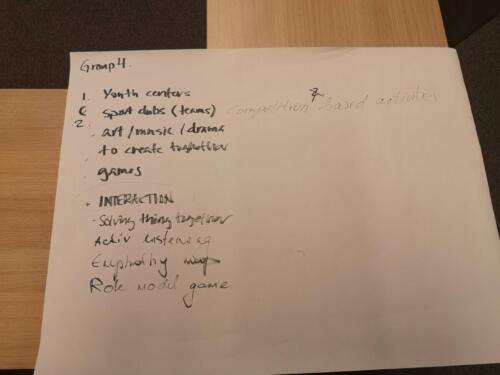 Group 4.
1. Youth centers
sport clubs (teams) competition based activities
2. art/music/drama
to create toghether
games
INTERACTION
- Solving thing together
Activ listening
Emphathy map
Role model game